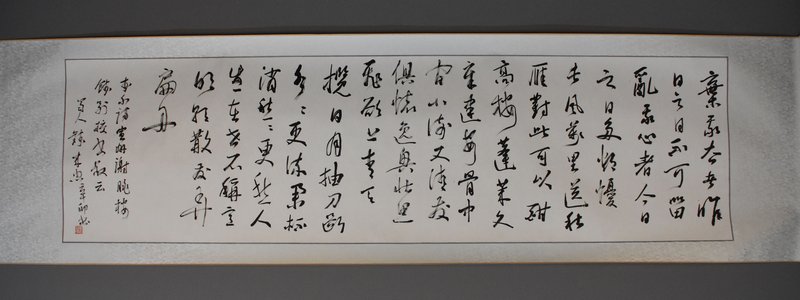 棄我去者昨
日之日不可留
亂我心者今日
之日多煩憂
長風萬里送秋
雁對此可以酣
高樓蓬萊文
章建安骨中
間小謝又清發
俱懷逸興壯思
飛欲上青天
攬日月抽刀斷
水〻更流舉杯
消愁〻更愁人
生在世不稱意
明朝散髮弄
扁舟
李白詩宣州謝朓樓
餞別校書叔云